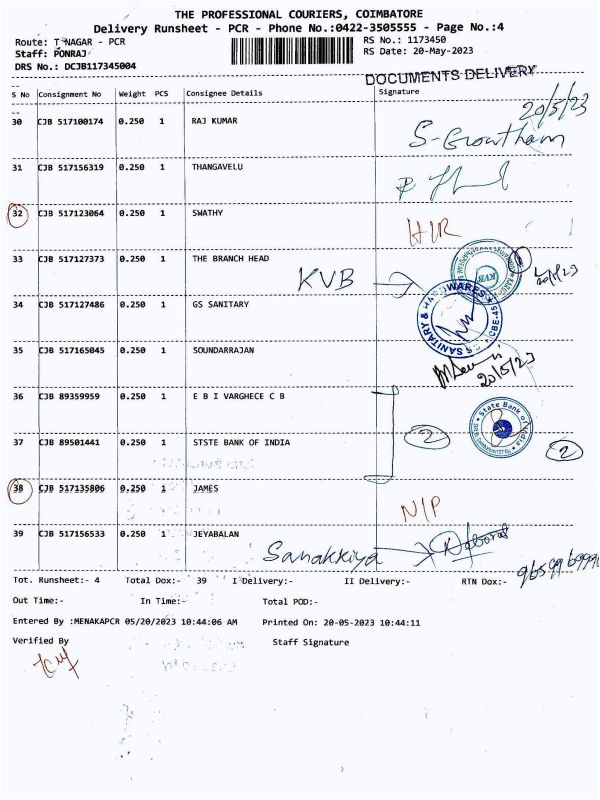 THE PROFESSIONAL COURIERS, COIMBATORE
Delivery Runsheet - PCR - Phone No.:0422-3505555 - Page No.:4
Route: T NAGAR - PCR RS No.: 1173450
Staff: PONRAJ RS Date: 20-May-2023
DRS No.: DCJB117345004
DOCUMENTS DELIVERY
S No Consignment No Weight PCS Consignee Details Signature
20/5/23
30 CJB 517100174 0.250 1 RAJ KUMAR
S-Gowtham
31 CJB 517156319 0.250 1 THANGAVELU
32 CJB 517123064 0.250 1 SWATHY
33 CJB 517127373 0.250 1 THE BRANCH HEAD
KVB
34 CJB 517127486 0.250 1 GS SANITARY
35 CJB 517165045 0.250 1 SOUNDARRAJAN
20/5/23
36 CJB 89359959 0.250 1 E B I VARGHECE C B
State Bank of
37 CJB 89501441 0.250 1 STSTE BANK OF INDIA 2 2
38 CJB 517135806 0.250 1 JAMES
N/P
39 CJB 517156533 0.250 1 JEYABALAN
Sanakkiya
Tot. Runsheet:- 4 Total Dox:- 39 I Delivery:- II Delivery:- RTN Dox:-
Out Time:- In Time:- Total POD:-
Entered By :MENAKAPCR 05/20/2023 10:44:06 AM Printed On: 20-05-2023 10:44:11
Verified By Staff Signature